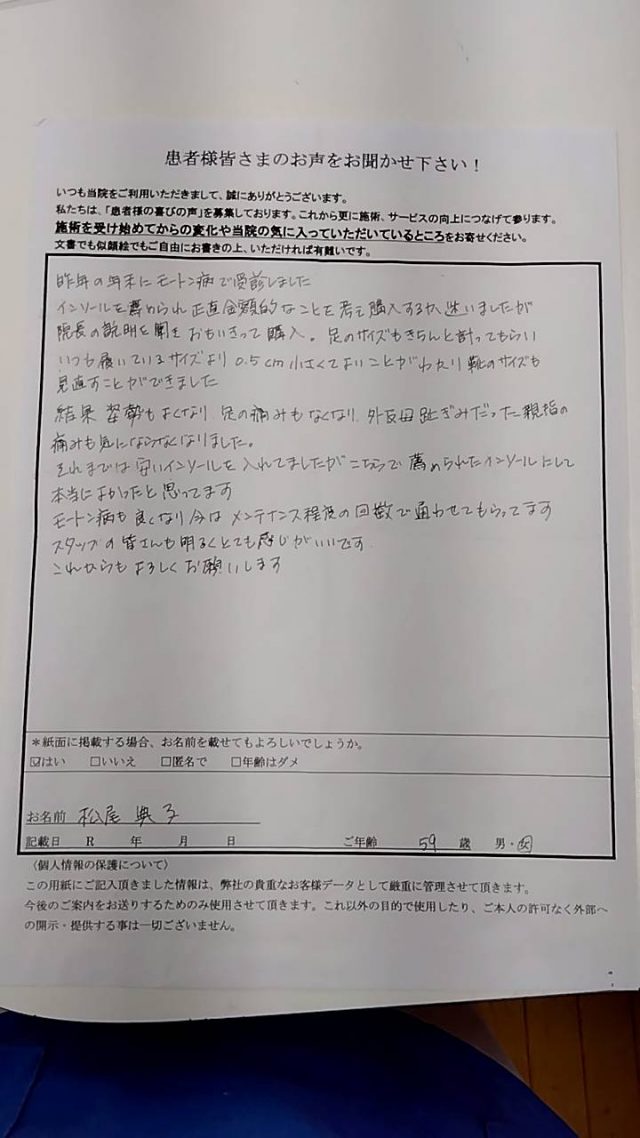 患者様皆さまのお声をお聞かせ下さい！
いつも当院をご利用いただきまして、誠にありがとうございます。
私たちは、「患者様の喜びの声」を募集しております。これから更に施術、サービスの向上につなげて参ります。
施術を受け始めてからの変化や当院の気に入っていただいているところをお寄せください。
文書でも似顔絵でもご自由にお書きの上、いただければ有難いです。
昨年の年末にモートン病で受診しました
インソールを薦められ正直金額的なことを考え購入するか迷いましたが
院長の説明を聞き おもいきって購入。足のサイズもきちんと計ってもらい
いつも履いているサイズより0.5cm小さくてよいことがわかり靴のサイズも
見直すことができました
結果 姿勢もよくなり 足の痛みもなくなり 外反母趾ぎみだった親指の
痛みも気にならなくなりました。
それまでは安いインソールを入れてましたがこちらで薦められたインソールにして
本当によかったと思ってます
モートン病も良くなり今はメンテイナンス程度の回数で通わせてもらってます
スタッフの皆さんも明るくとても感じがいいです
これからもよろしくお願いします
＊紙面に掲載する場合、お名前を載せてもよろしいでしょうか。
☑はい □いいえ □匿名で □年齢はダメ
お名前 松尾 典子
記載日 R 年 月 日 ご年齢 59 歳 男・女
〈個人情報の保護について〉
この用紙にご記入頂きました情報は、弊社の貴重なお客様データとして厳重に管理させて頂きます。
今後のご案内をお送りするためのみ使用させて頂きます。これ以外の目的で使用したり、ご本人の許可なく外部へ
の開示・提供する事は一切ございません。